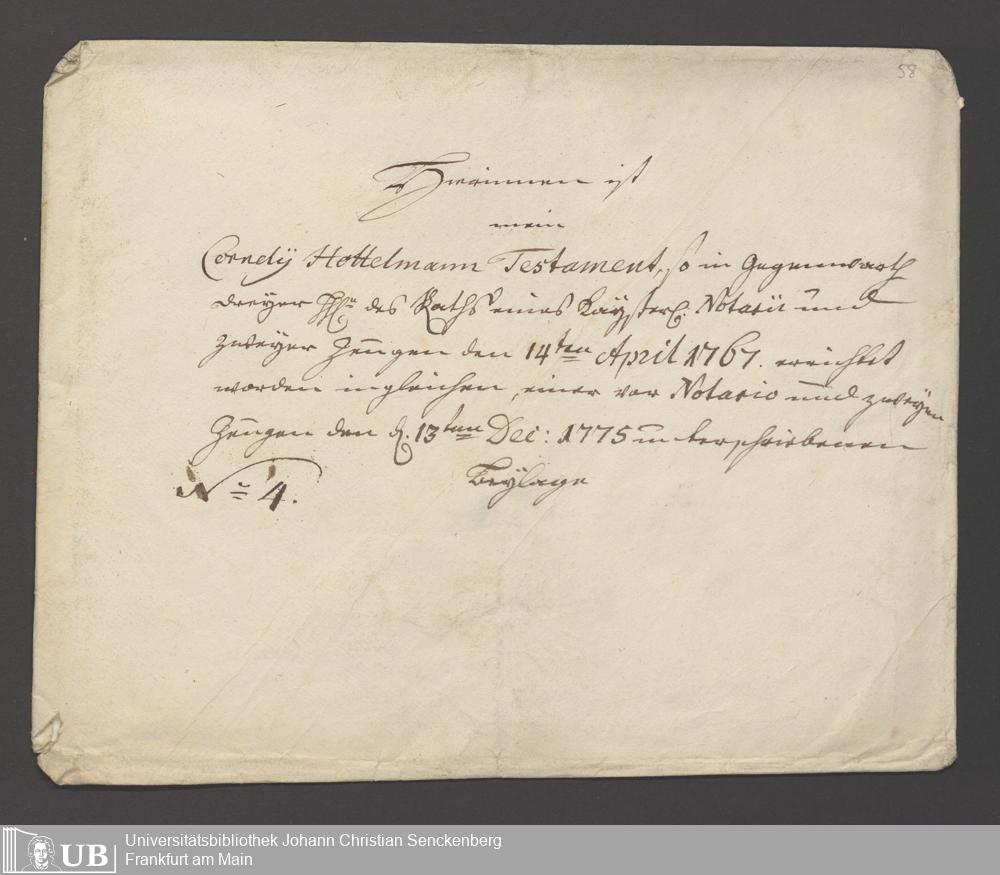 58
Hierinnen ist
mein
Cornelij Hottelmann Testament, so in Gegenwarth
dreyer HH.n des Raths eines Kayserl. Notarii und
zweyer Zeugen den 14ten April 1767. errichtet
worden ingleichen, einer vor Notario und zweyen
Zeugen den d. 13ten Dec: 1775 unterschriebenen
No 4. Beylage
UB Universitätsbibliothek Johann Christian Senckenberg
Frankfurt am Main